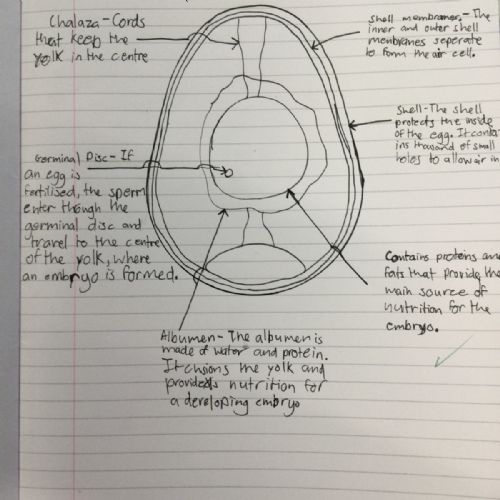 Chalaza - Cords
that keep the
yolk in the centre
Shell membranes - The
inner and outer shell
membranes seperate
to form the air cell.
Shell - The shell
protects the inside
of the egg. It conta
ins thousand of small
holes to allow air in
Germinal Disc - If
an egg is
fertilised, the sperm
enter though the
germinal disc and
travel to the centre
of the yolk, where
an embryo is formed.
Contains proteins and
fats that provide the
main source of
nutrition for the
embryo.
Albumen - The albumen is
made of water and protein.
It chusions the yolk and
provides nutrition for
a developing embryo